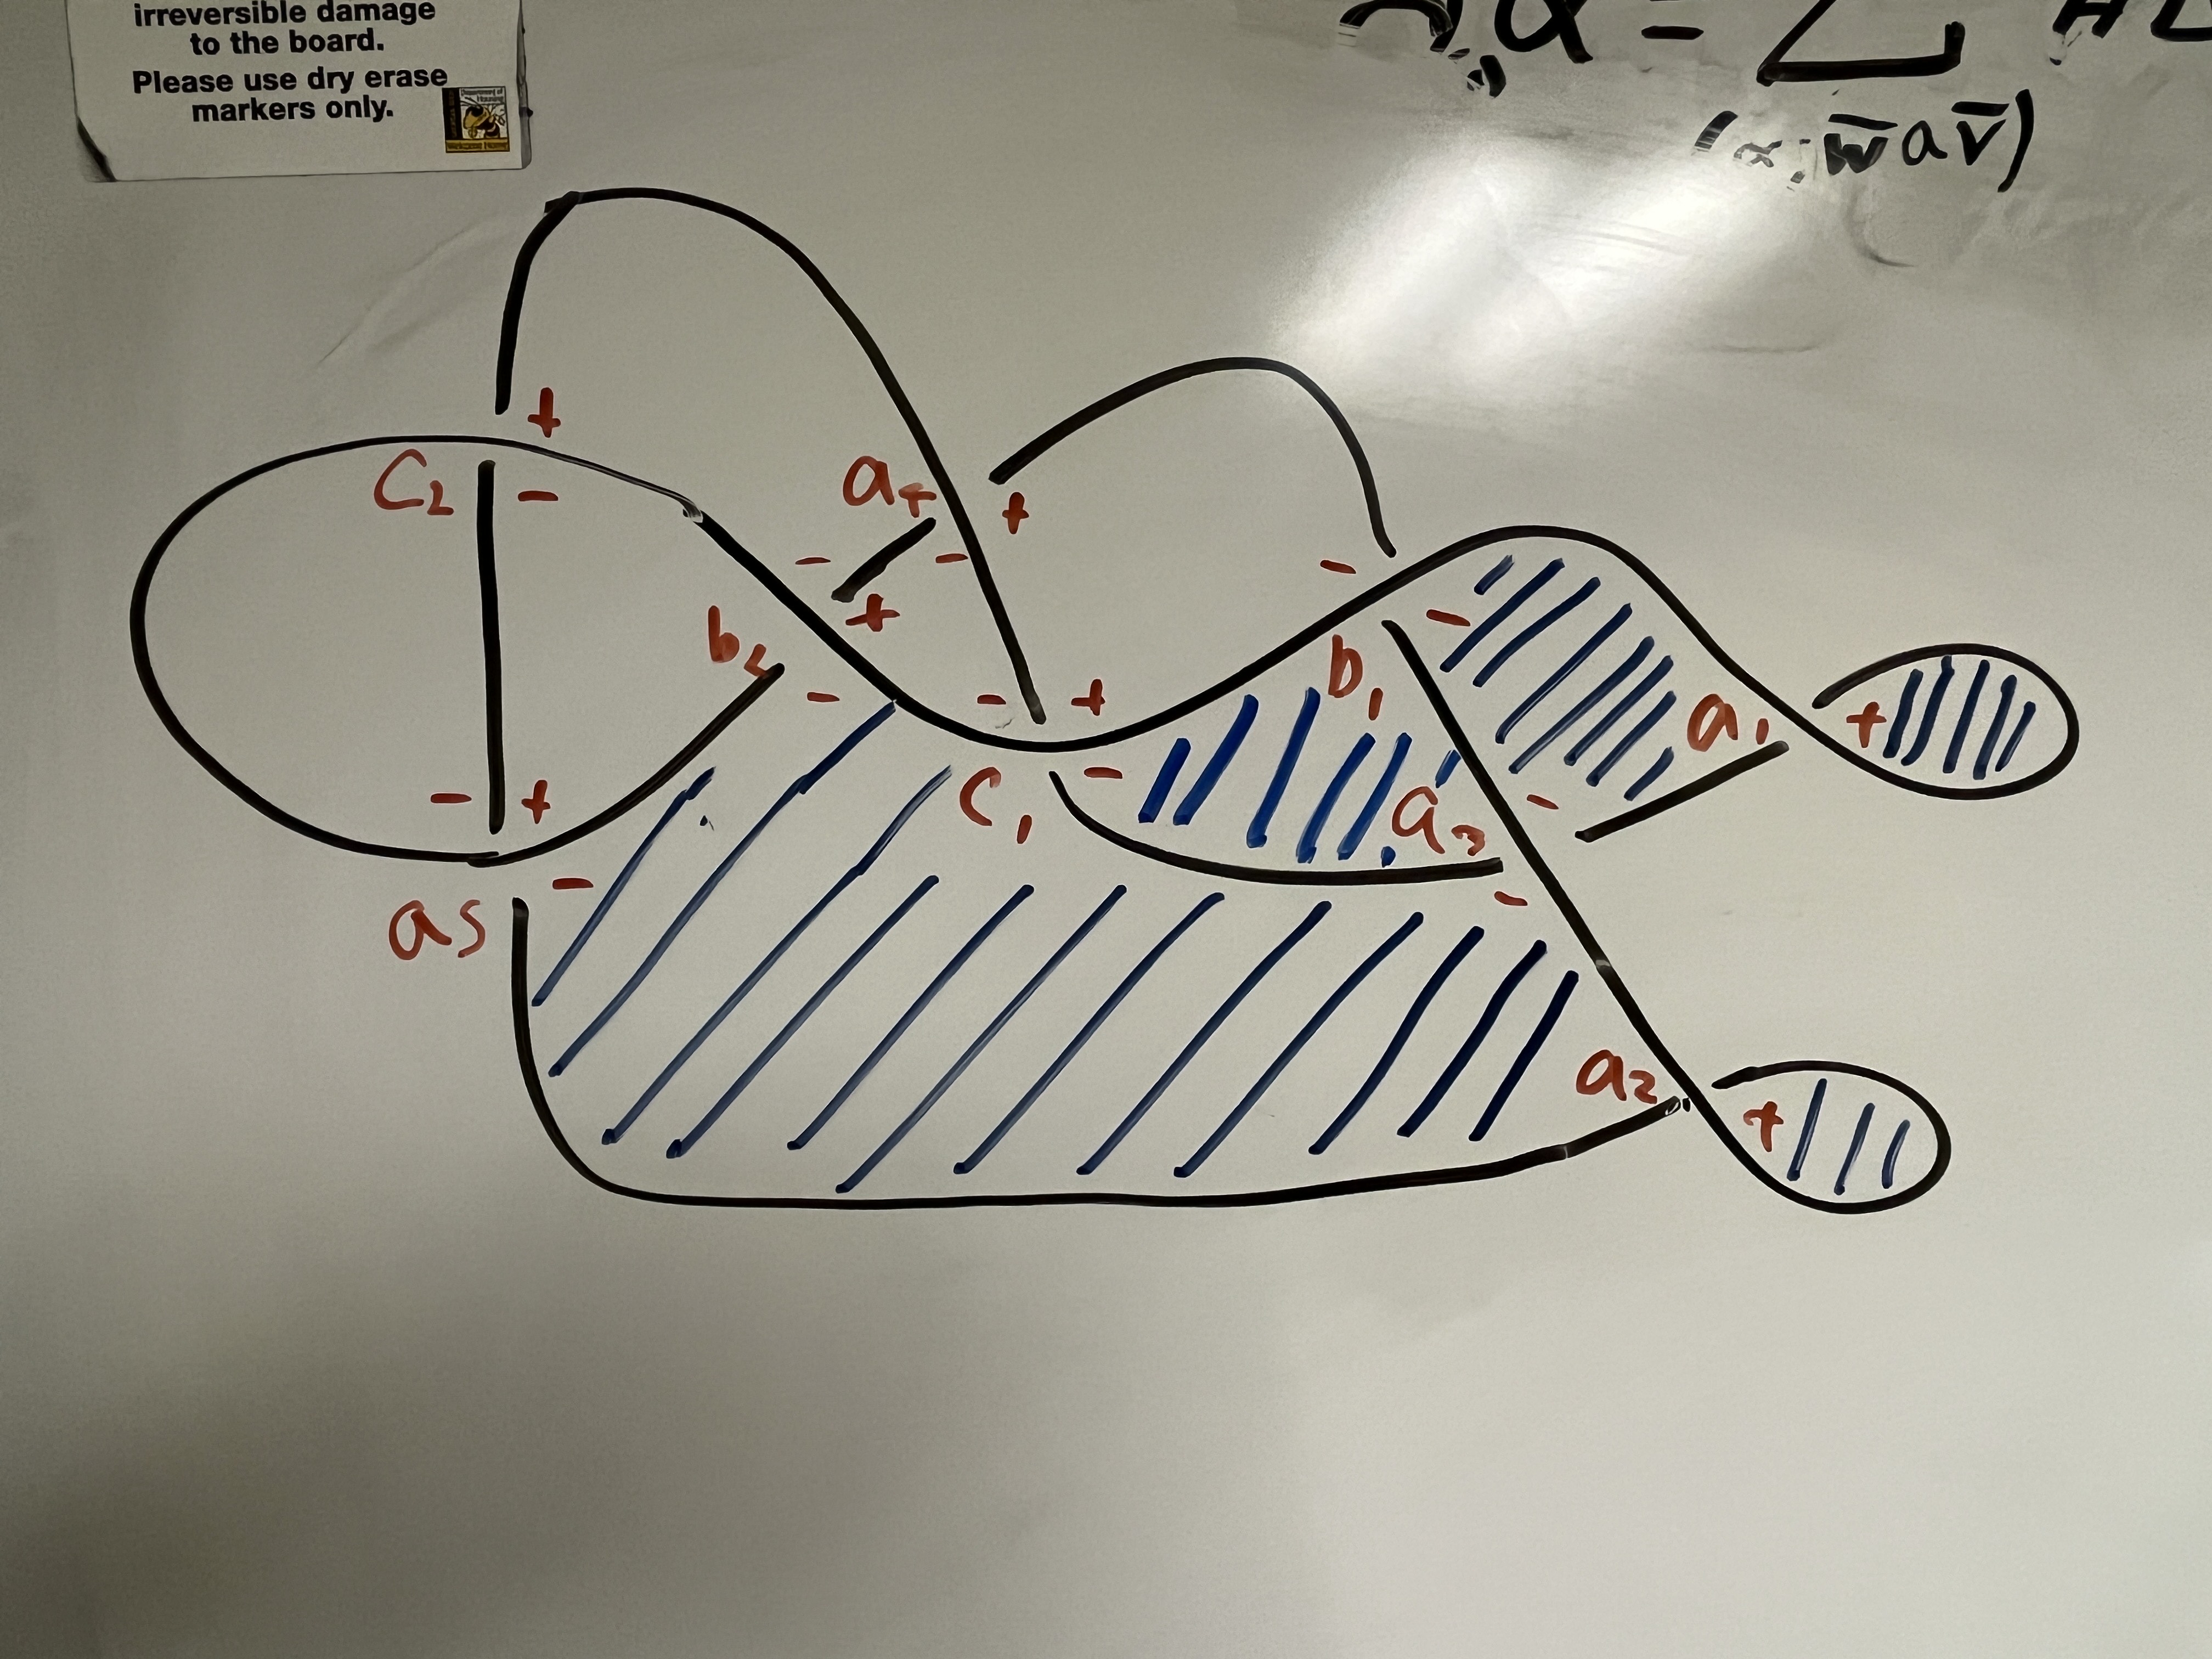 irreversible damage
to the board.
Please use dry erase
markers only.
Department of
Housing
Welcome Home
α = Σ
(x; w̅ a v̅)
+
C₂ −
a₄ +
− −
+
b₂ −
− +
b₁ −
−
a₁ +
c₁ −
− +
a₃ −
−
a₅ −
a₂ +